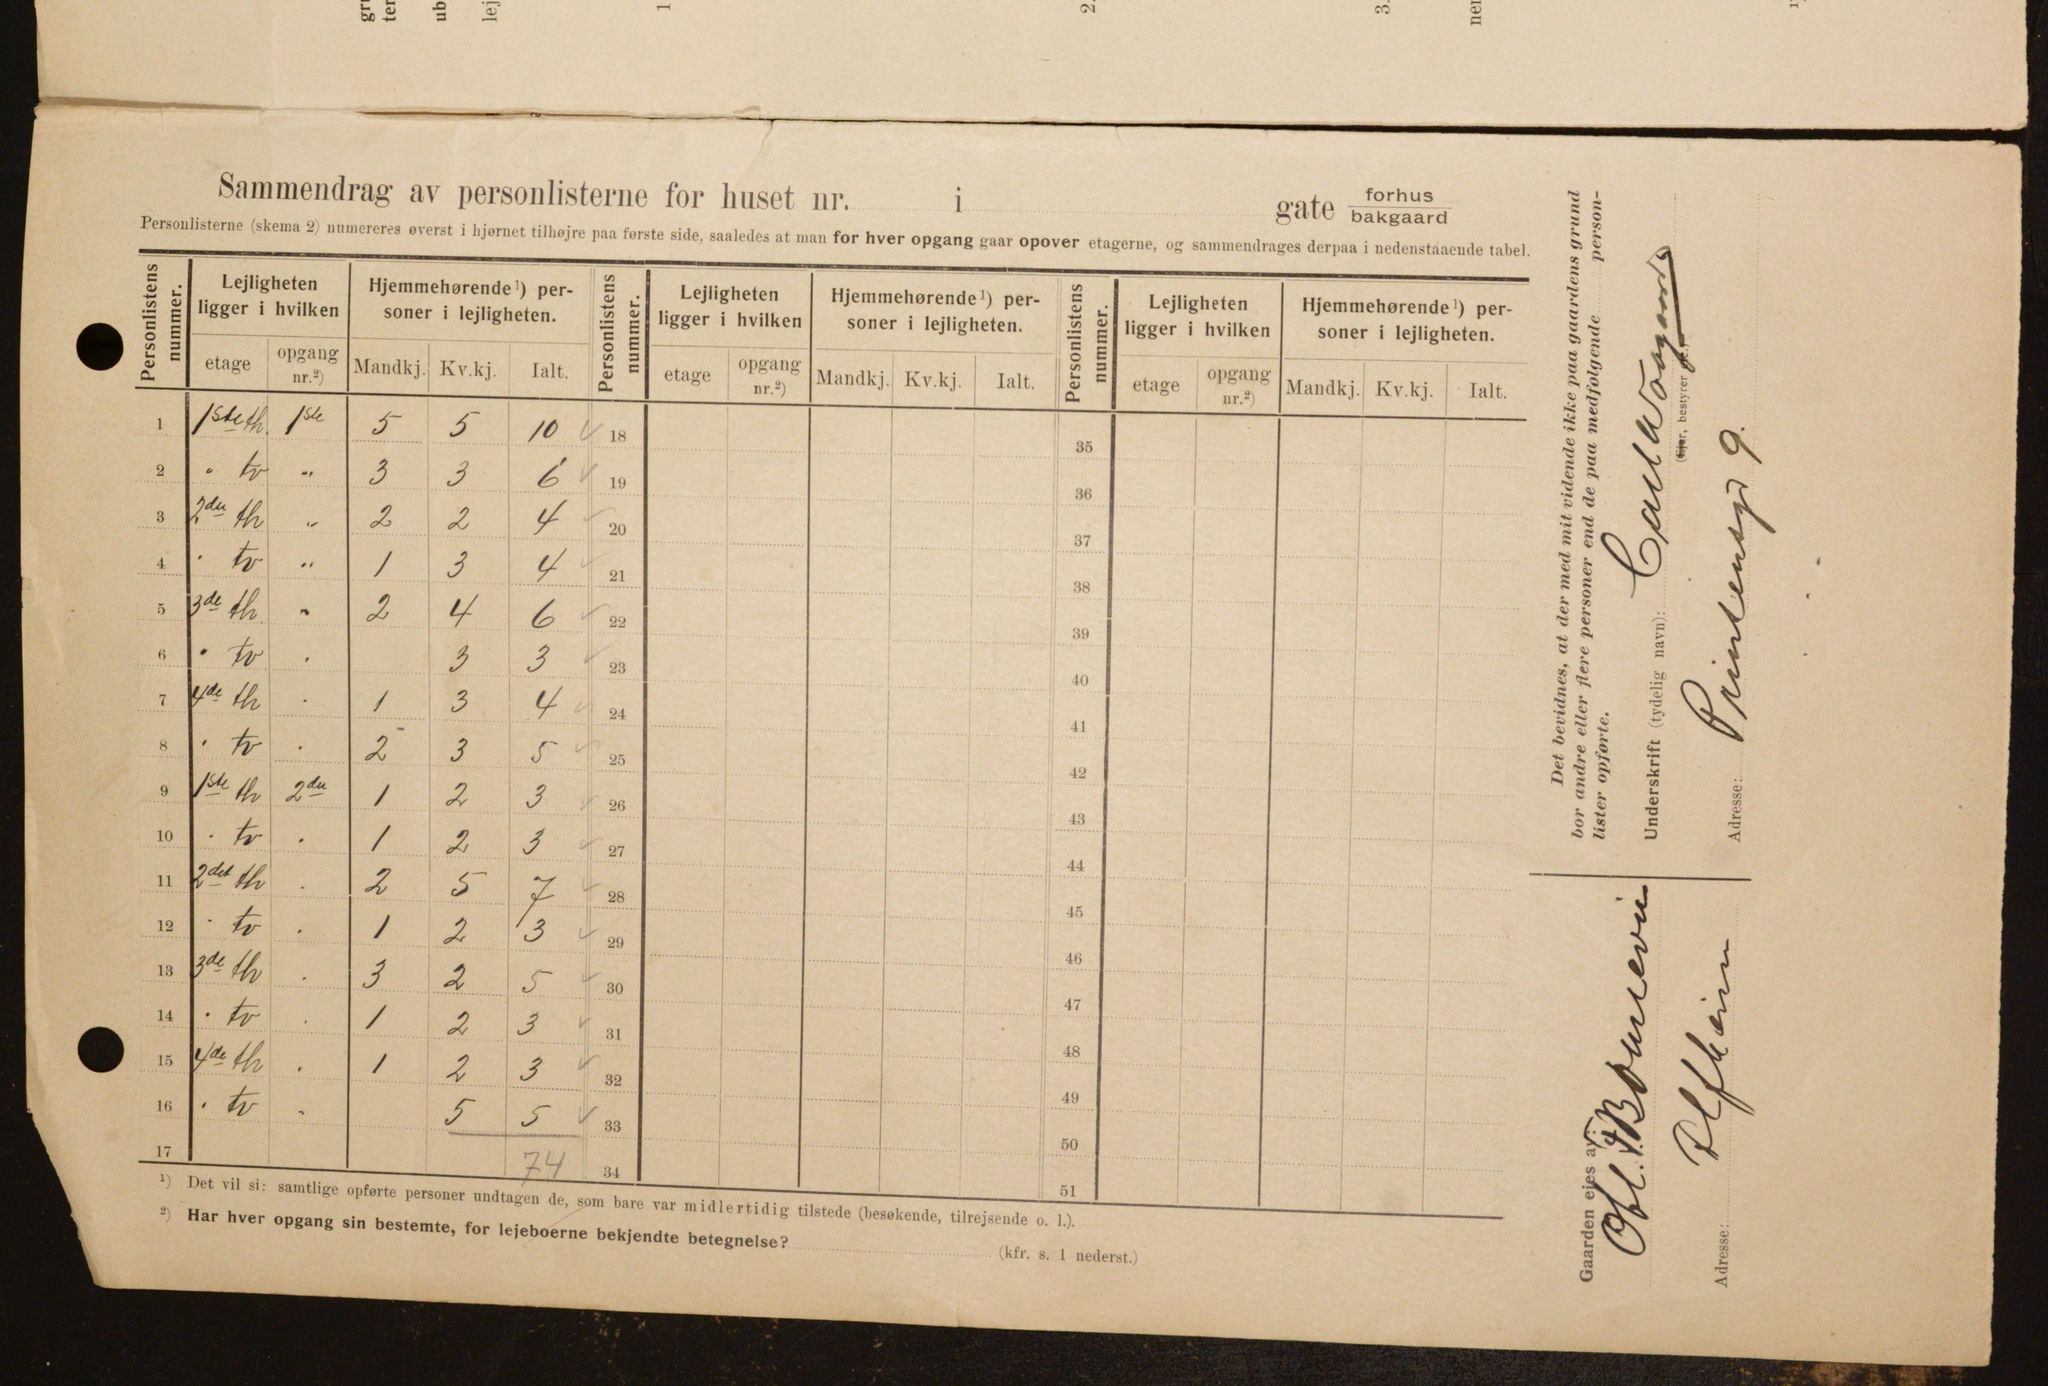 Sammendrag av personlisterne for huset nr. i gate forhus bakgaard
Personlisterne (skema 2) numereres øverst i hjørnet tilhøjre paa første side, saaledes at man for hver opgang gaar opover etagerne, og sammendrages derpaa i nedenstaaende tabel.
Personlistens nummer. Lejligheten ligger i hvilken Hjemmehørende ¹) personer i lejligheten. Personlistens nummer. Lejligheten ligger i hvilken Hjemmehørende ¹) personer i lejligheten. Personlistens nummer. Lejligheten ligger i hvilken Hjemmehørende ¹) personer i lejligheten.
etage opgang nr.²) Mandkj. Kv.kj. Ialt. etage opgang nr.²) Mandkj. Kv.kj. Ialt. etage opgang nr.²) Mandkj. Kv.kj. Ialt.
1 1ste th. 1ste 5 5 10 ✓ 18 35
2 " tv " 3 3 6 ✓ 19 36
3 2den th " 2 2 4 ✓ 20 37
4 " tv " 1 3 4 ✓ 21 38
5 3de th " 2 4 6 ✓ 22 39
6 " tv " 3 3 ✓ 23 40
7 4de th " 1 3 4 ✓ 24 41
8 " tv " 2 3 5 ✓ 25 42
9 1ste th 2den 1 2 3 ✓ 26 43
10 " tv " 1 2 3 ✓ 27 44
11 2det th " 2 5 7 ✓ 28 45
12 " tv " 1 2 3 ✓ 29 46
13 3de th " 3 2 5 ✓ 30 47
14 " tv " 1 2 3 ✓ 31 48
15 4de th " 1 2 3 ✓ 32 49
16 " tv " 5 5 ✓ 33 50
17 74 34 51
¹) Det vil si: samtlige opførte personer undtagen de, som bare var midlertidig tilstede (besøkende, tilrejsende o. l.).
²) Har hver opgang sin bestemte, for lejeboerne bekjendte betegnelse? (kfr. s. 1 nederst.)
Det bevidnes, at der med mit vidende ikke paa gaardens grund
bor andre eller flere personer end de paa medfølgende person-
lister opførte.
Underskrift (tydelig navn): Carl
(Ejer, bestyrer
Adresse: Prinsensgd 9.
Gaarden ejes av:
Adresse: Alfheim